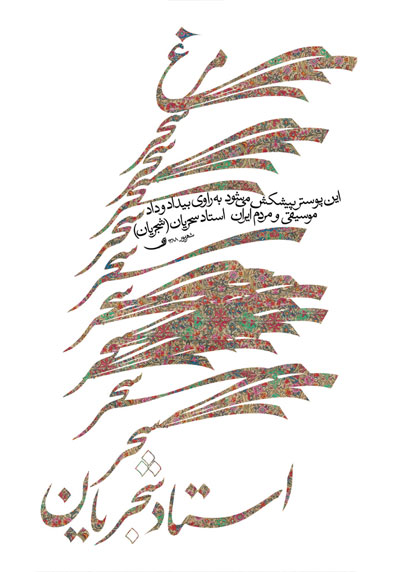 مرغ
سحر
سحر
سحر
سحر
این پوستر پیشکش می‌شود به راوی بیداد و داد
موسیقی و مردم ایران استاد سحریان (شجریان)
شهریور ۱۳۸۸
سحر
سحر
سحر
سحر
سحر
استاد شجریان